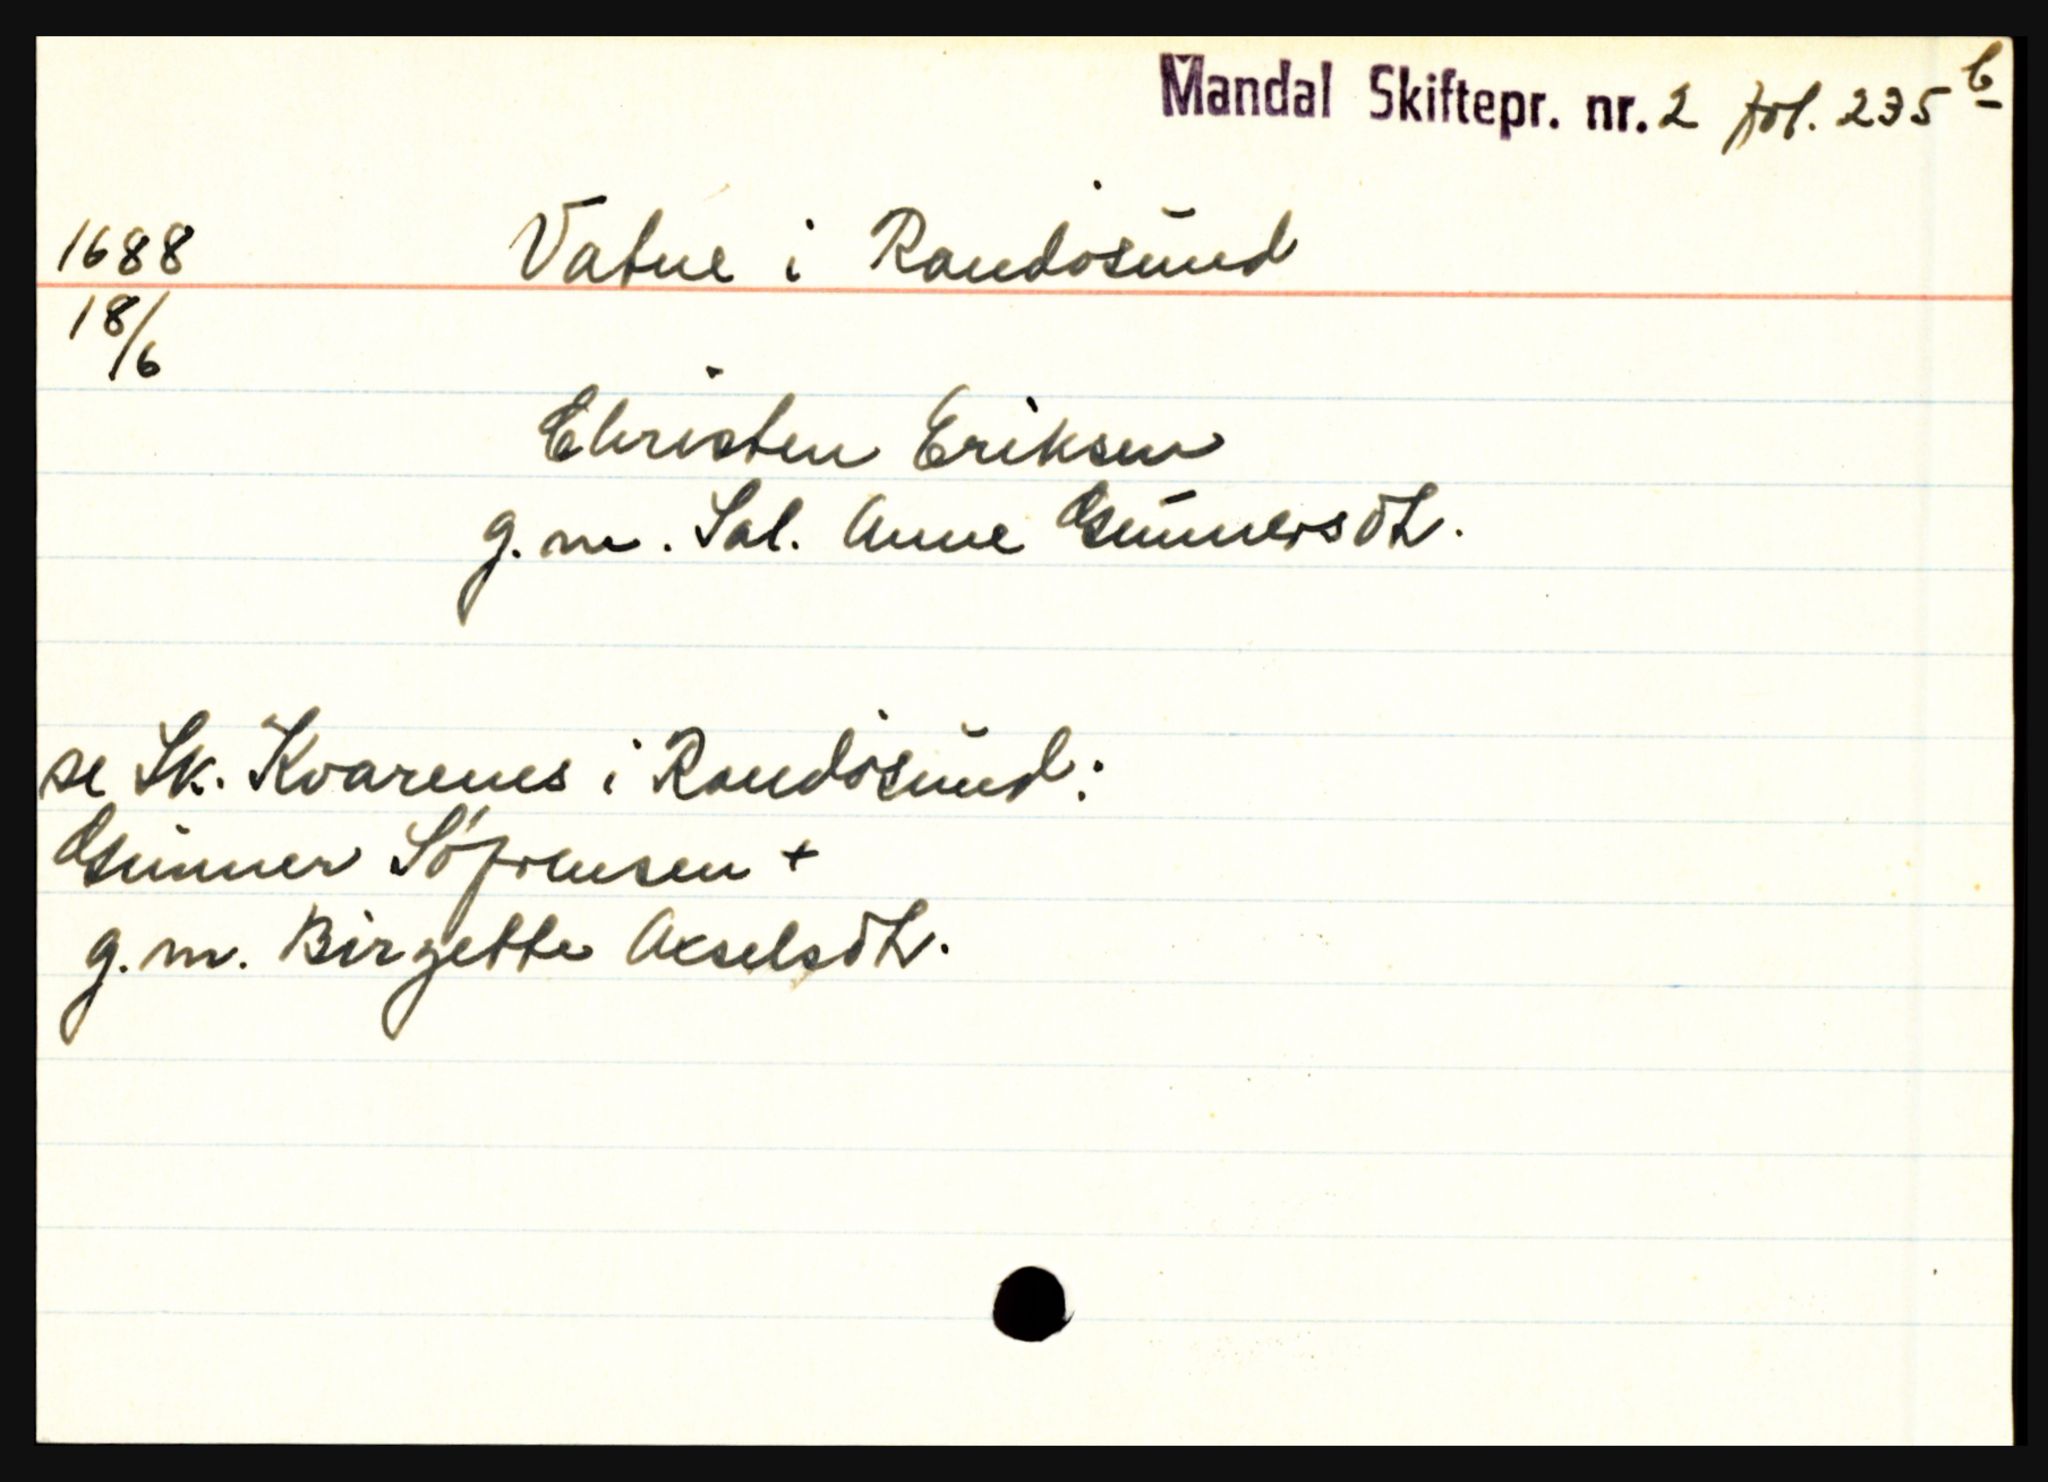 Mandal Skiftepr. nr. 2 fol. 235 b
1688 Vatne i Randøsund
18/6
Christen Eriksen
g.m. Sal. Anne Gunnersdtr.
se Sk. Kvarenes i Randøsund:
Gunner Søfrensen +
g.m. Birgette Axselsdtr.